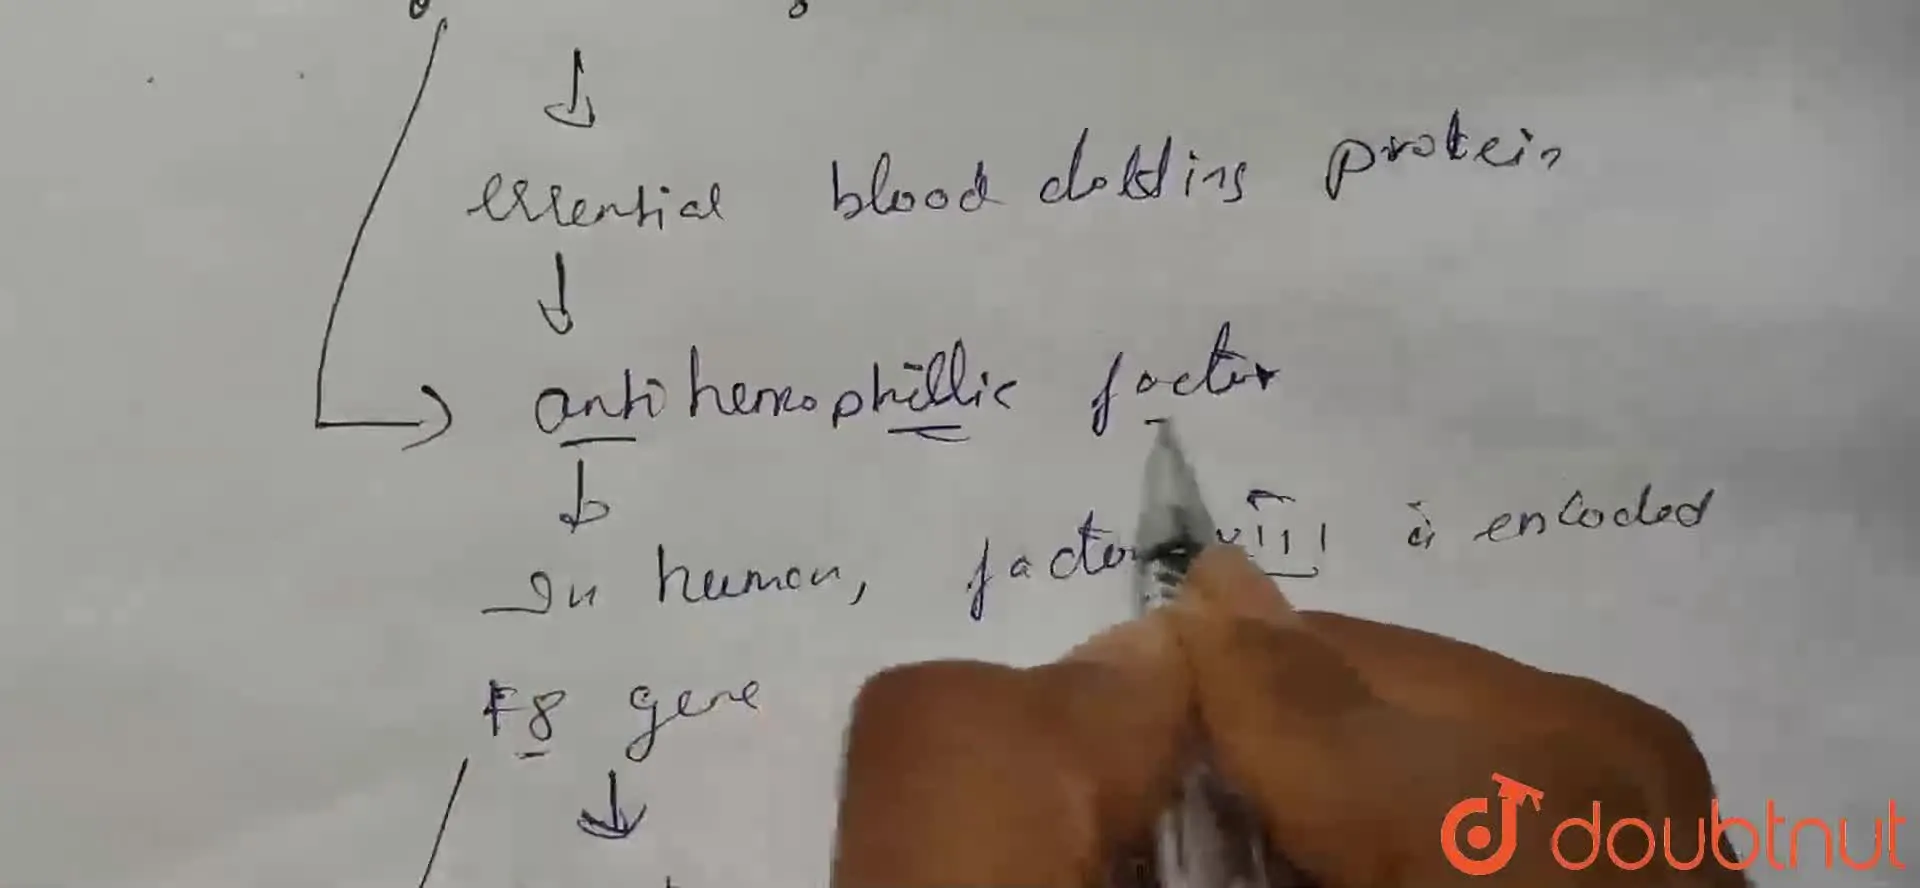 essential blood clotting protein
anti hemophillic factor
In human, factor VIII is encoded
F8 gene
doubtnut